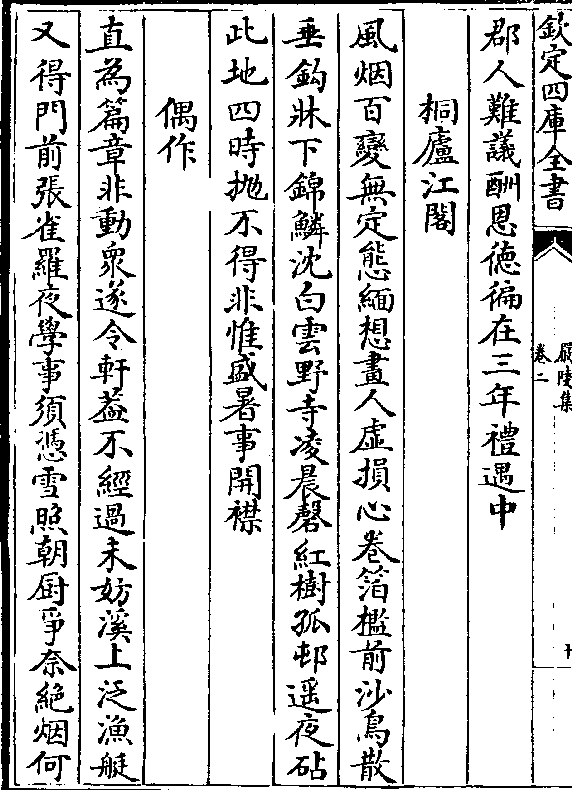 欽定四庫全書
嚴陵集
卷二
十
郡人難議酬恩德徧在三年禮遇中
桐廬江閣
風烟百變無定態緬想畫人虛損心卷箔檻前沙鳥散
垂鈎牀下錦鱗沈白雲野寺凌晨磬紅樹孤邨遥夜砧
此地四時抛不得非惟盛暑事開襟
偶作
直為篇章非動衆遂令軒葢不經過未妨溪上泛漁艇
又得門前張雀羅夜學事須憑雪照朝厨爭奈絶烟何